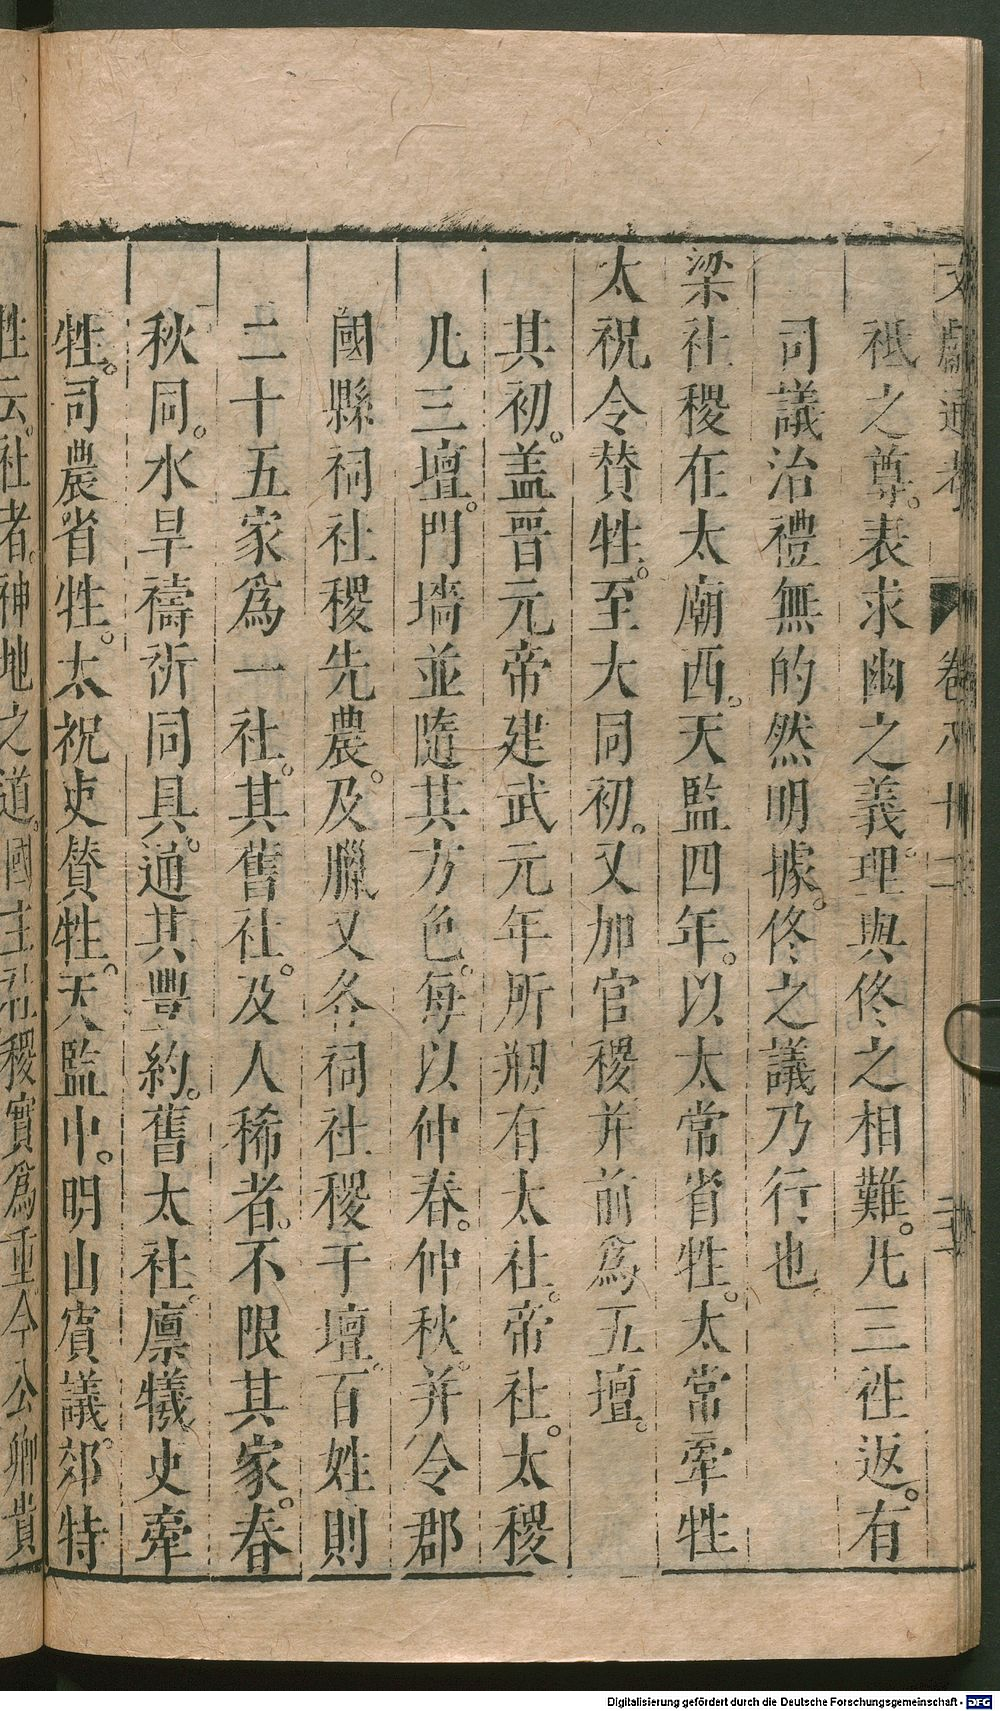 文獻通考 卷八十二
祗之尊。表求幽之義。理與佟之相難。凡三往返。有
司議治禮無的然明據。佟之議乃行也
梁社稷在太廟西。天監四年。以太常省牲。太常牽牲
太祝令贊牲。至大同初。又加官稷并前爲五壇。
其初。蓋晉元帝建武元年所剏有太社。帝社。太稷
凡三壇。門墻並隨其方色。每以仲春。仲秋。并令郡
國縣祠社稷先農。及臘又各祠社稷于壇。百姓則
二十五家爲一社。其舊社。及人稀者。不限其家。春
秋同。水旱禱祈同具。通其豐約。舊太社。廪犧史牽
牲。司農省牲。太祝吏贊牲。天監中。明山賓議。郊特
牲云。社者。神地之道。國主社稷實爲重今公卿貴
Digitalisierung gefördert durch die Deutsche Forschungsgemeinschaft - DFG